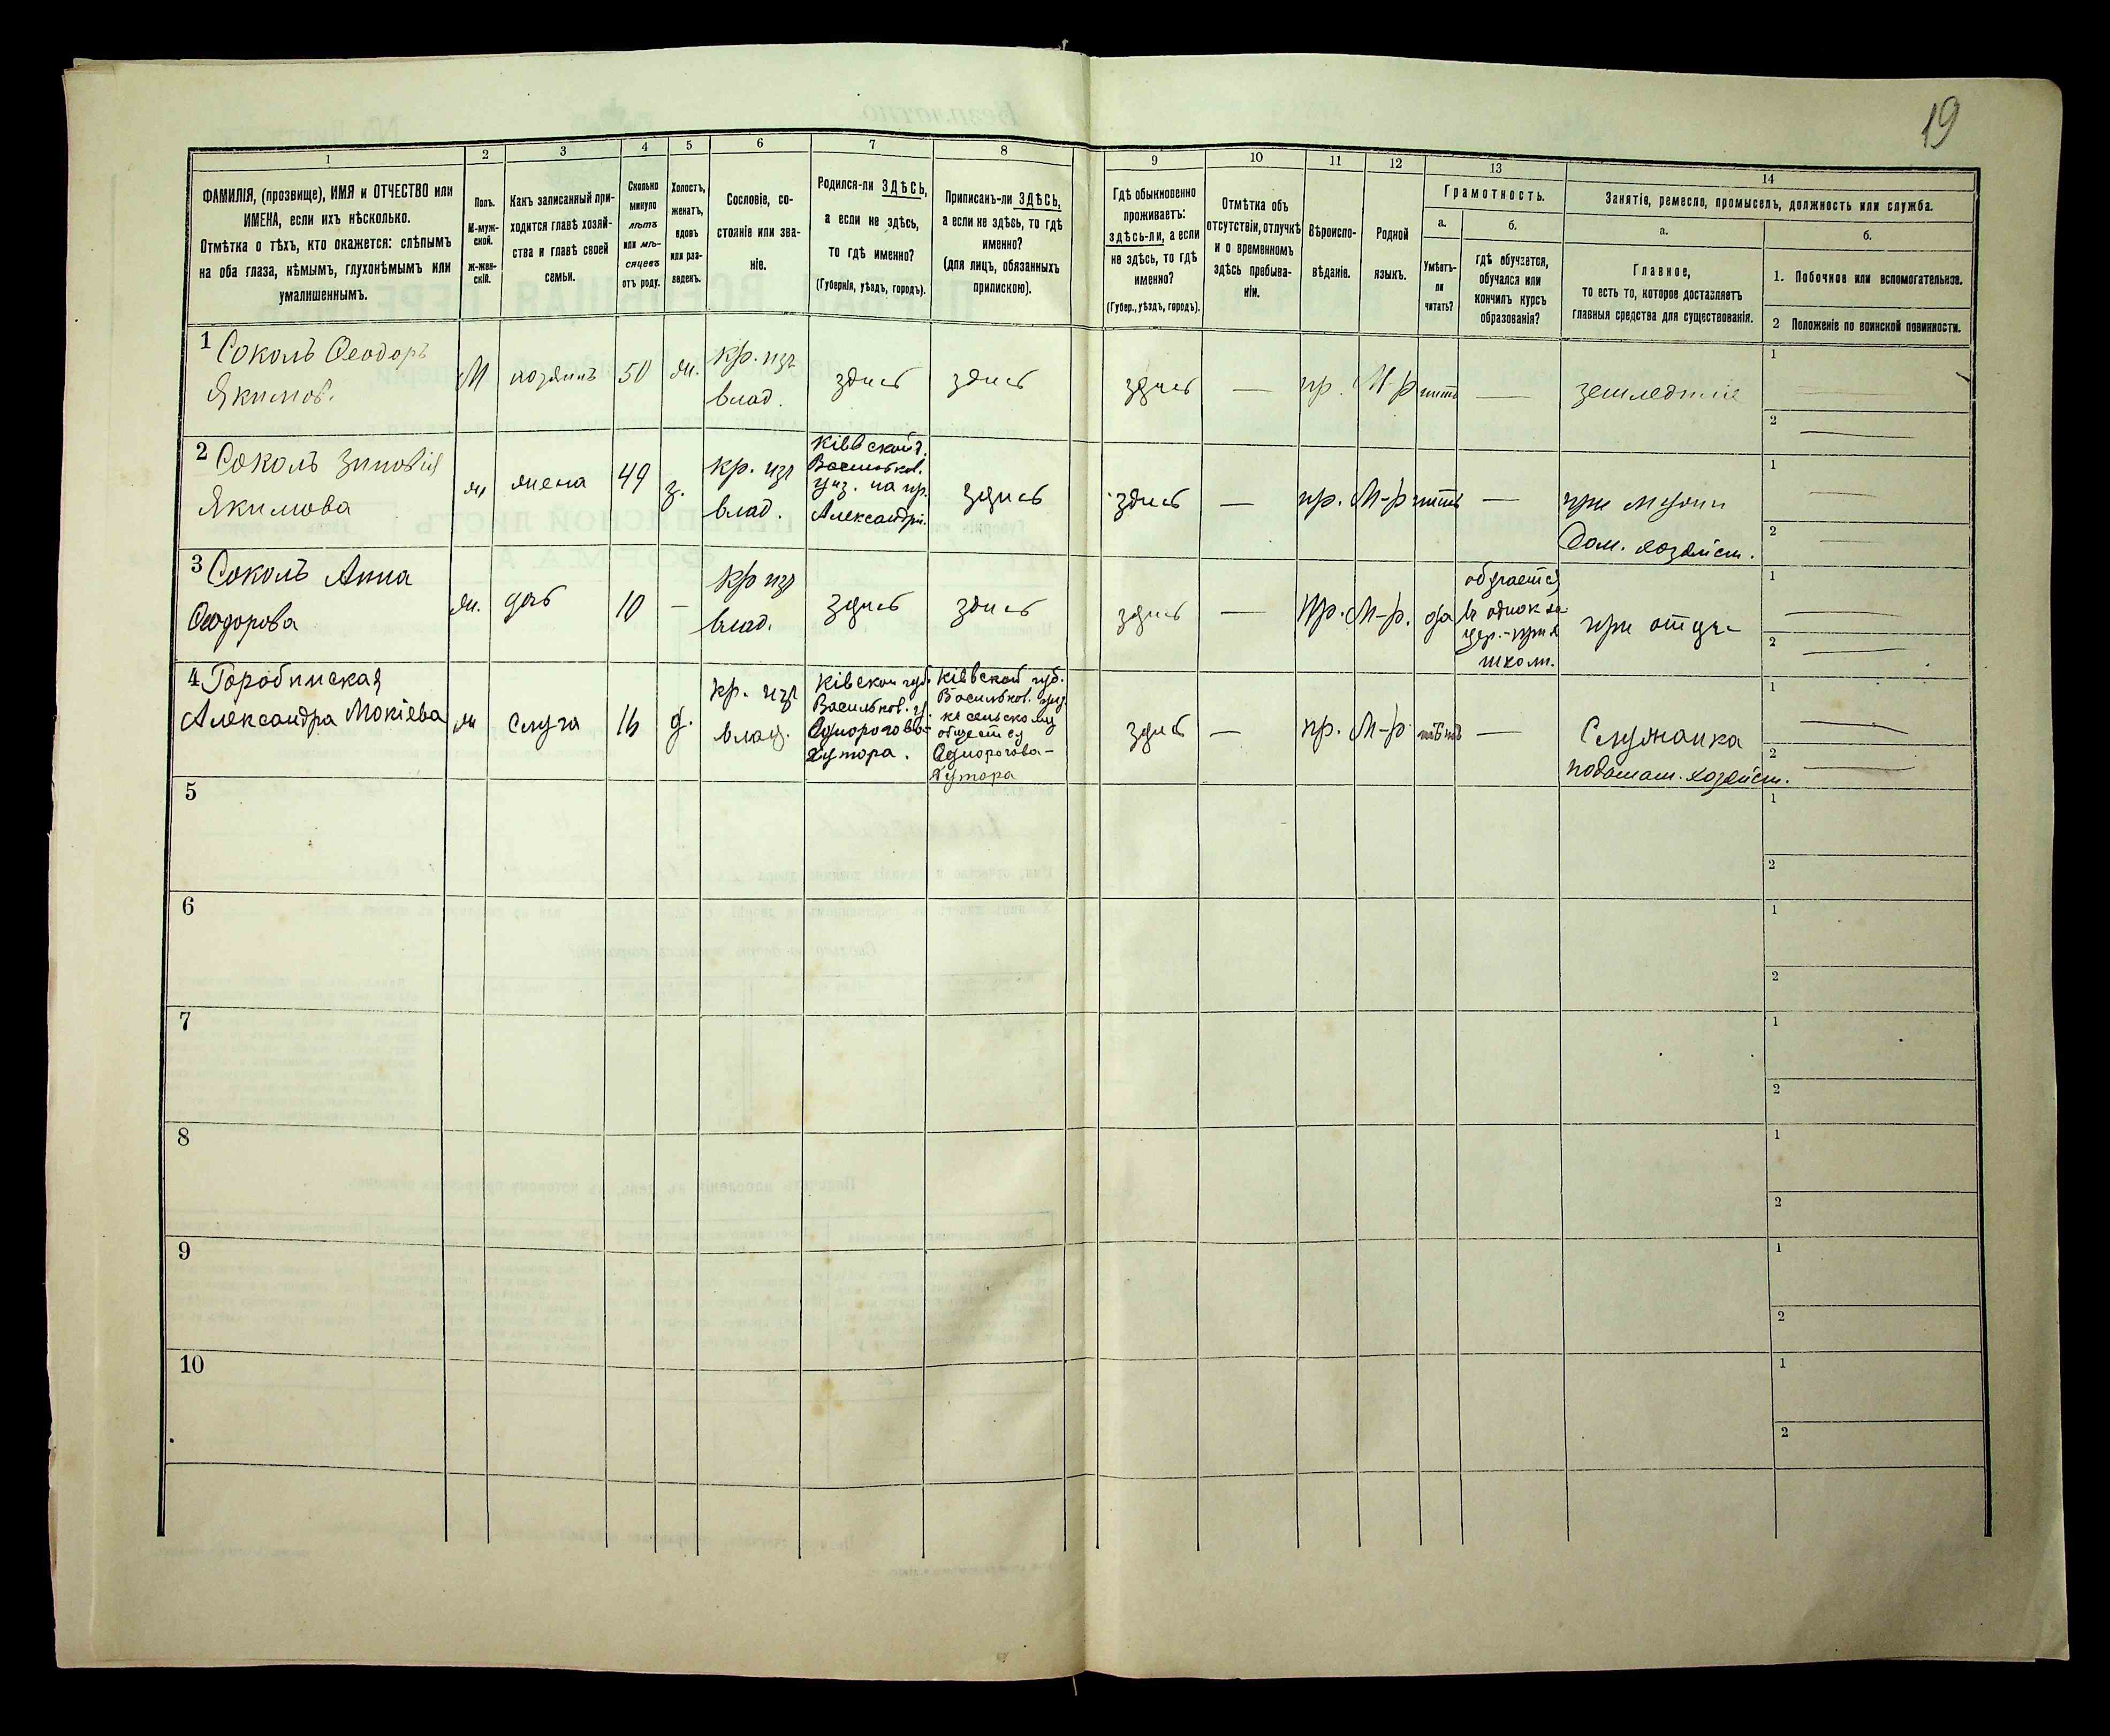 19
1
2
3
4
5
6
7
8
9
10
11
12
13
14
ФАМИЛІЯ, (прозвище), ИМЯ и ОТЧЕСТВО или
ИМЕНА, если ихъ нѣсколько.
Отмѣтка о тѣхъ, кто окажется: слѣпымъ
на оба глаза, нѣмымъ, глухонѣмымъ или
умалишеннымъ.
Полъ.
М-муж-
ской.
Ж-жен-
скій.
Какъ записанный при-
ходится главѣ хозяй-
ства и главѣ своей
семьи.
Сколько
минуло
лѣтъ
или мѣ-
сяцевъ
отъ роду.
Холостъ,
женатъ,
вдовъ
или раз-
веденъ.
Сословіе, со-
стояніе или зва-
ніе.
Родился-ли ЗДѢСЬ,
а если не здѣсь,
то гдѣ именно?
(Губернія, уѣздъ, городъ).
Приписанъ-ли ЗДѢСЬ,
а если не здѣсь, то гдѣ
именно?
(для лицъ, обязанныхъ
припискою).
Гдѣ обыкновенно
проживаетъ:
здѣсь-ли, а если
не здѣсь, то гдѣ
именно?
(Губер., уѣздъ, городъ).
Отмѣтка объ
отсутствіи, отлучкѣ
и о временномъ
здѣсь пребыва-
ніи.
Вѣроиспо-
вѣданіе.
Родной
языкъ.
Грамотность.
а.
Умѣетъ-
ли
читать?
б.
гдѣ обучается,
обучался или
кончилъ курсъ
образованія?
Занятіе, ремесло, промыселъ, должность или служба.
а.
Главное,
то есть то, которое доставляетъ
главныя средства для существованія.
б.
1. Побочное или вспомогательное.
2 Положеніе по воинской повинности.
1 Соколъ Ѳеодоръ
Якимов.
М
хозяинъ
50
ж.
кр. изъ
влад.
здѣсь
здѣсь
здѣсь
—
пр.
М-р
нѣтъ
—
земледѣліе
1
2
2 Соколъ Зиновія
Якимова
ж
жена
49
з.
кр. изъ
влад.
Кіевской г.
Васильков.
уѣз.
Александри.
здѣсь
здѣсь
—
пр.
М-р
нѣтъ
—
при мужѣ
Дом. хозяйст.
1
2
3 Соколъ Анна
Ѳеодорова
ж.
дочь
10
—
кр изъ
влад.
здѣсь
здѣсь
здѣсь
—
пр.
М-р.
да
обучается
въ однокла
цер.-прих
школѣ.
при отцѣ
1
2
4 Горобинская
Александра Мокіева
ж
слуга
16
д.
кр. изъ
влад.
Кіевской губ.
Васильков. у.
Однорогова-
Хутора.
Кіевской губ.
Васильков. уѣз.
къ сельскому
обществу
Однорогова-
Хутора
здѣсь
—
пр.
М-р
нѣтъ
—
Служанка
по домаш. хозяйст.
1
2
5
1
2
6
1
2
7
1
2
8
1
2
9
1
2
10
1
2